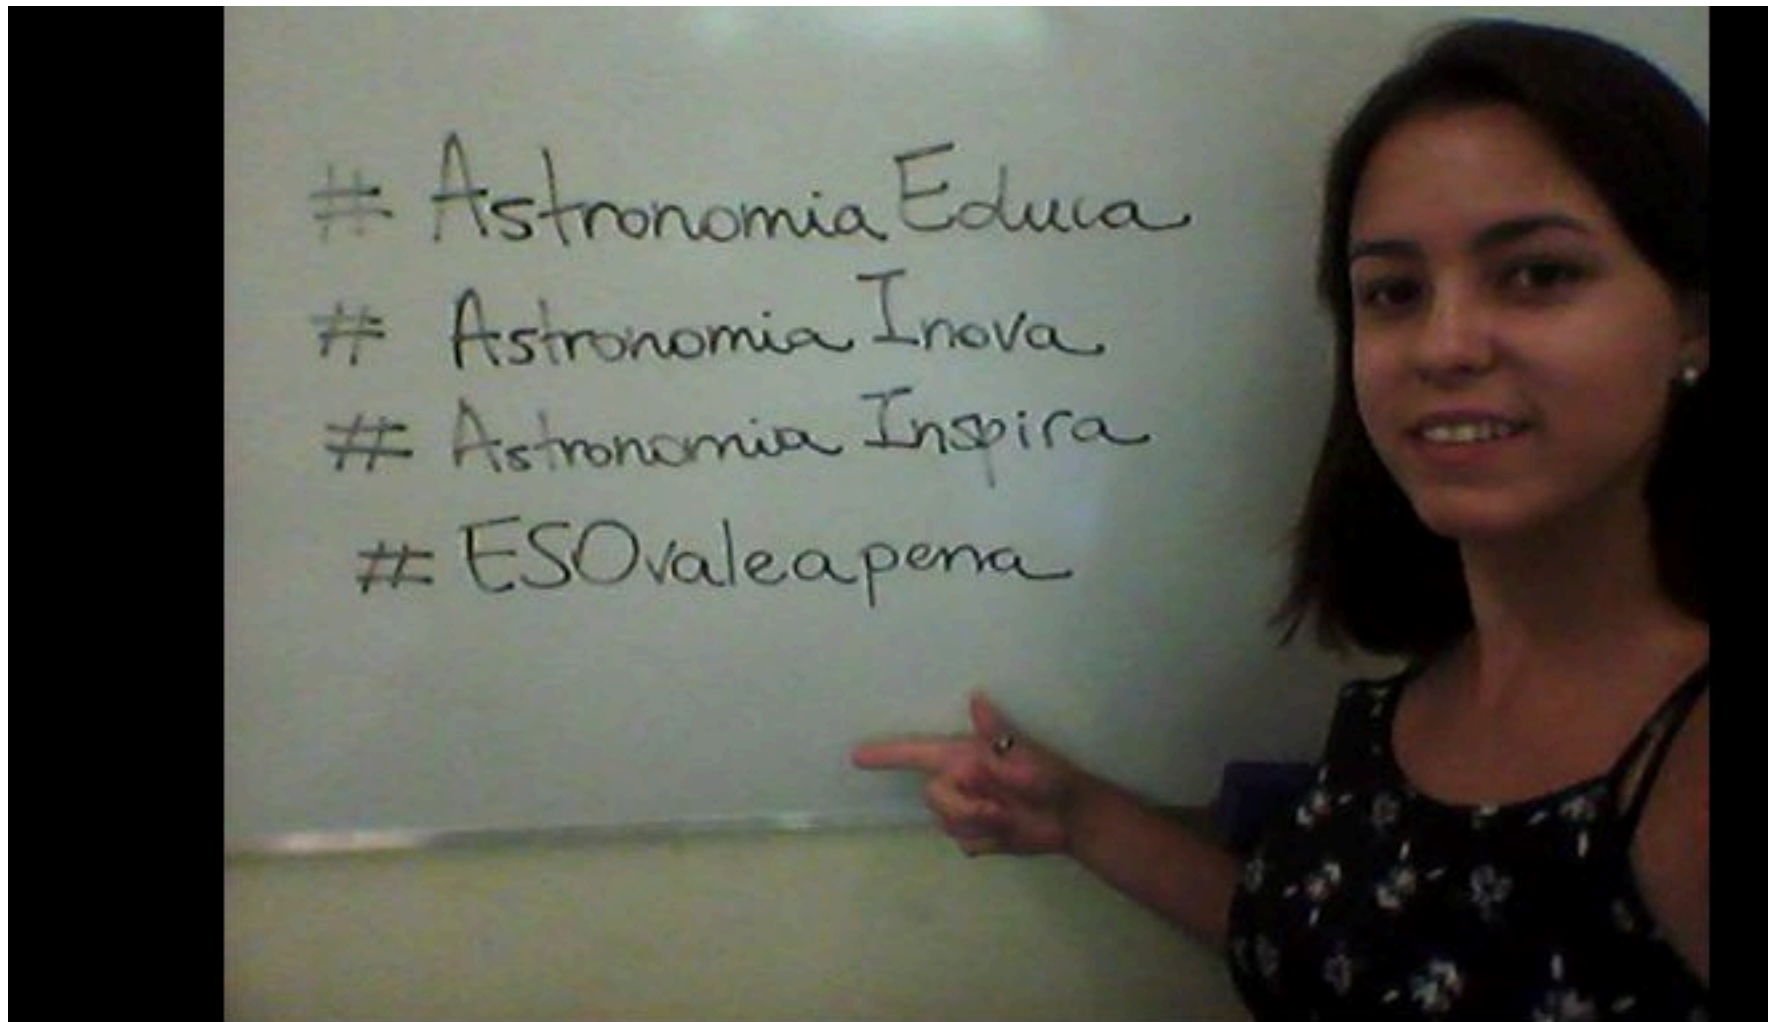 # AstronomiaEduca
# AstronomiaInova
# AstronomiaInspira
# ESOvaleapena